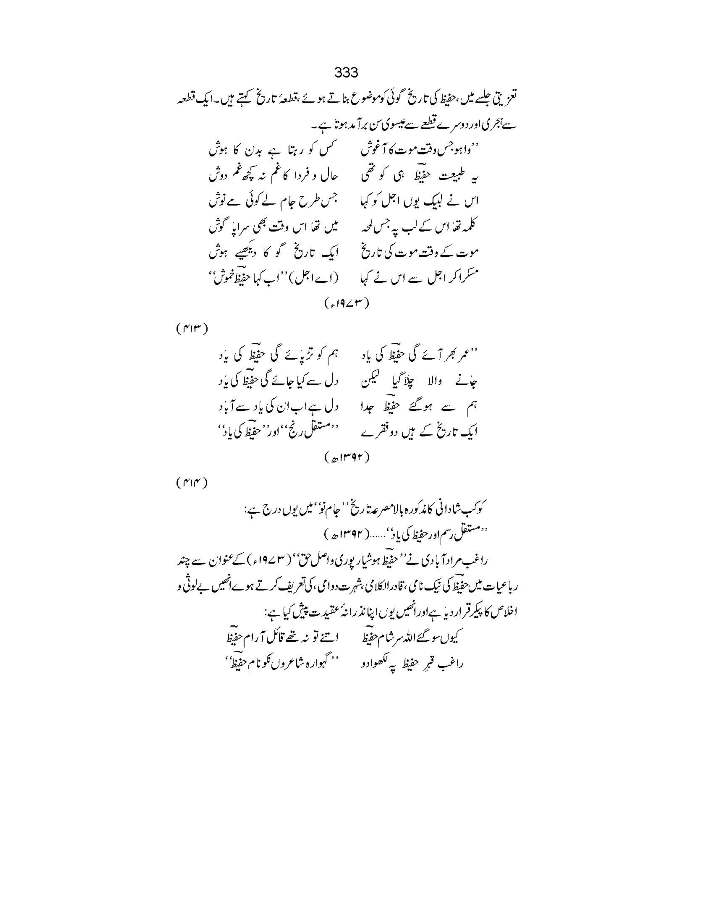 333
تعزیتی جلسے میں، حفیظ کی تاریخ گوئی کو موضوع بناتے ہوئے، قطعۂ تاریخ کہتے ہیں۔ ایک قطعہ
سے ہجری اور دوسرے قطعے سے عیسوی سن برآمد ہوتا ہے۔
’’وا ہو جس وقت موت کا آغوش کس کو رہتا ہے بدن کا ہوش
یہ طبیعت حفیظؔ ہی کو تھی حال و فردا کا غم نہ کچھ غم دوش
اس نے لبیک یوں اجل کو کہا جس طرح جام لے کوئی مے نوش
کلمہ تھا اس کے لب پہ جس لمحہ میں تھا اس وقت بھی سراپا گوش
موت کے وقت موت کی تاریخ ایک تاریخ گو کا دیکھیے ہوش
مسکرا کر اجل سے اس نے کہا (اے اجل) ’’اب کہا حفیظؔ خموش‘‘
(۱۹۷۳ء)
(۴۱۳)
’’عمر بھر آئے گی حفیظؔ کی یاد ہم کو تڑپائے گی حفیظؔ کی یاد
جانے والا چلا گیا لیکن دل سے کیا جائے گی حفیظؔ کی یاد
ہم سے ہو گئے حفیظؔ جدا دل ہے اب ان کی یاد سے آباد
ایک تاریخ کے ہیں دو فقرے ’’مستقل رنج‘‘ اور ’’حفیظؔ کی یاد‘‘
(۱۳۹۲ھ)
(۴۱۴)
کوکب شادانی کا مذکورہ بالا مصرعۂ تاریخ ’’جامِ نو‘‘ میں یوں درج ہے:
’’مستقل رسم اور حفیظ کی یاد‘‘......(۱۳۹۲ھ)
راغب مراد آبادی نے ’’حفیظ ہوشیارپوری واصل حق‘‘ (۱۹۷۳ء) کے عنوان سے چند
رباعیات میں حفیظؔ کی نیک نامی، قادر الکلامی، شہرت دوامی، کی تعریف کرتے ہوے انھیں بے لوثی و
اخلاص کا پیکر قرار دیا ہے اور انھیں یوں اپنا نذرانۂ عقیدت پیش کیا ہے:
کیوں سو گئے اللہ سرِ شام حفیظؔ اتنے تو نہ تھے قائل آرام حفیظؔ
راغب قبرِ حفیظ پہ لکھوا دو ’’گہوارہ شاعروں نکو نام حفیظؔ‘‘